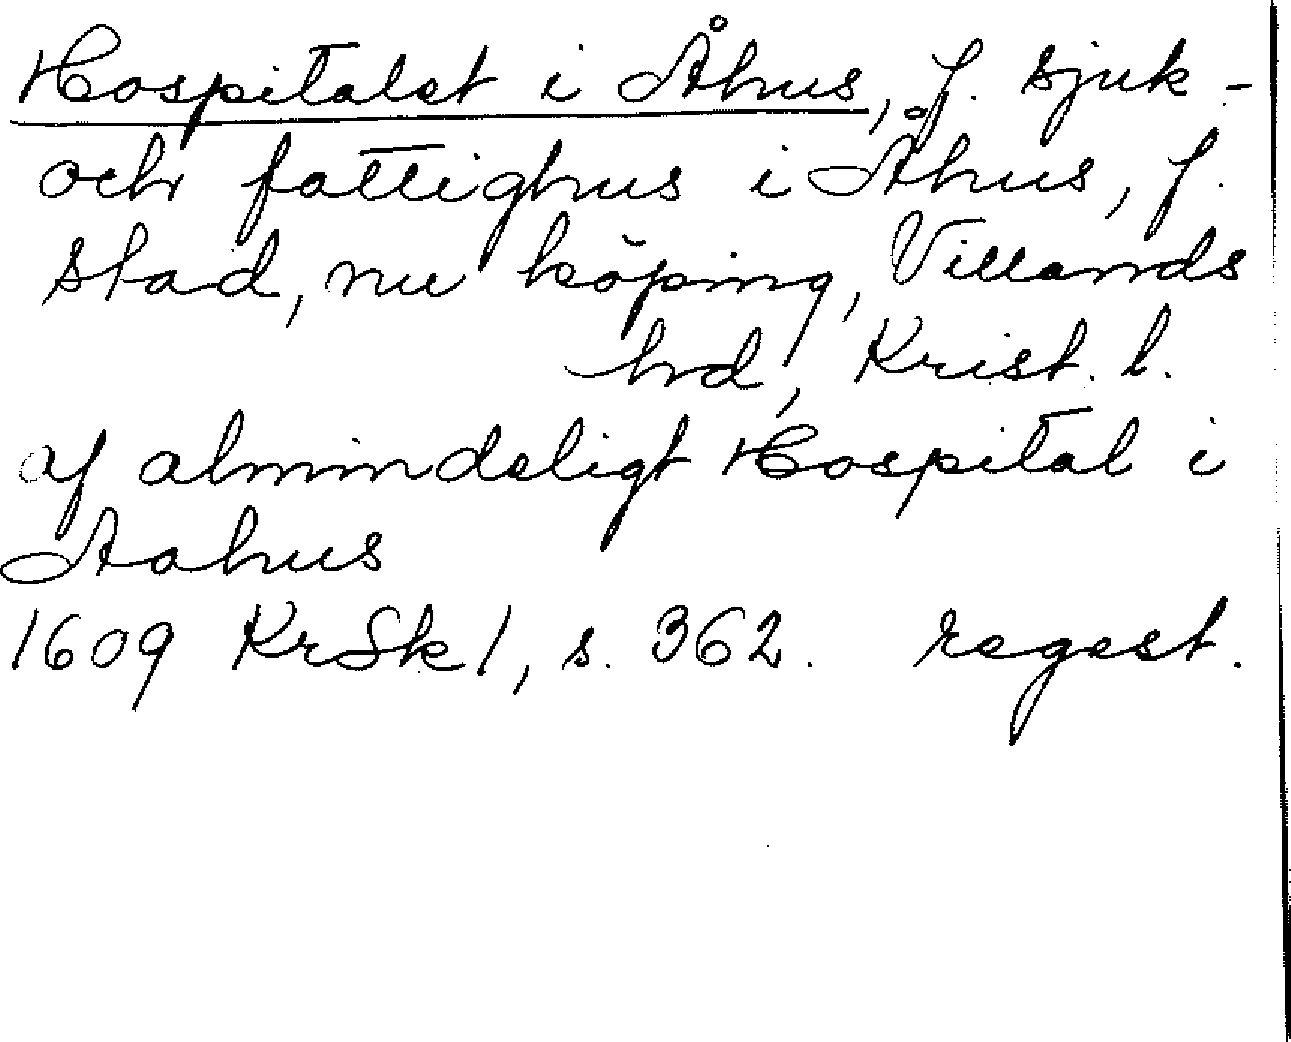 Hospitalet i Åhus, f. sjuk-
och fattighus i Åhus, f.
stad, nu köping, Villands
hrd, Krist. l.
af almindeligt Hospital i
Aahus
1609 KrSk 1, s. 362. regest.